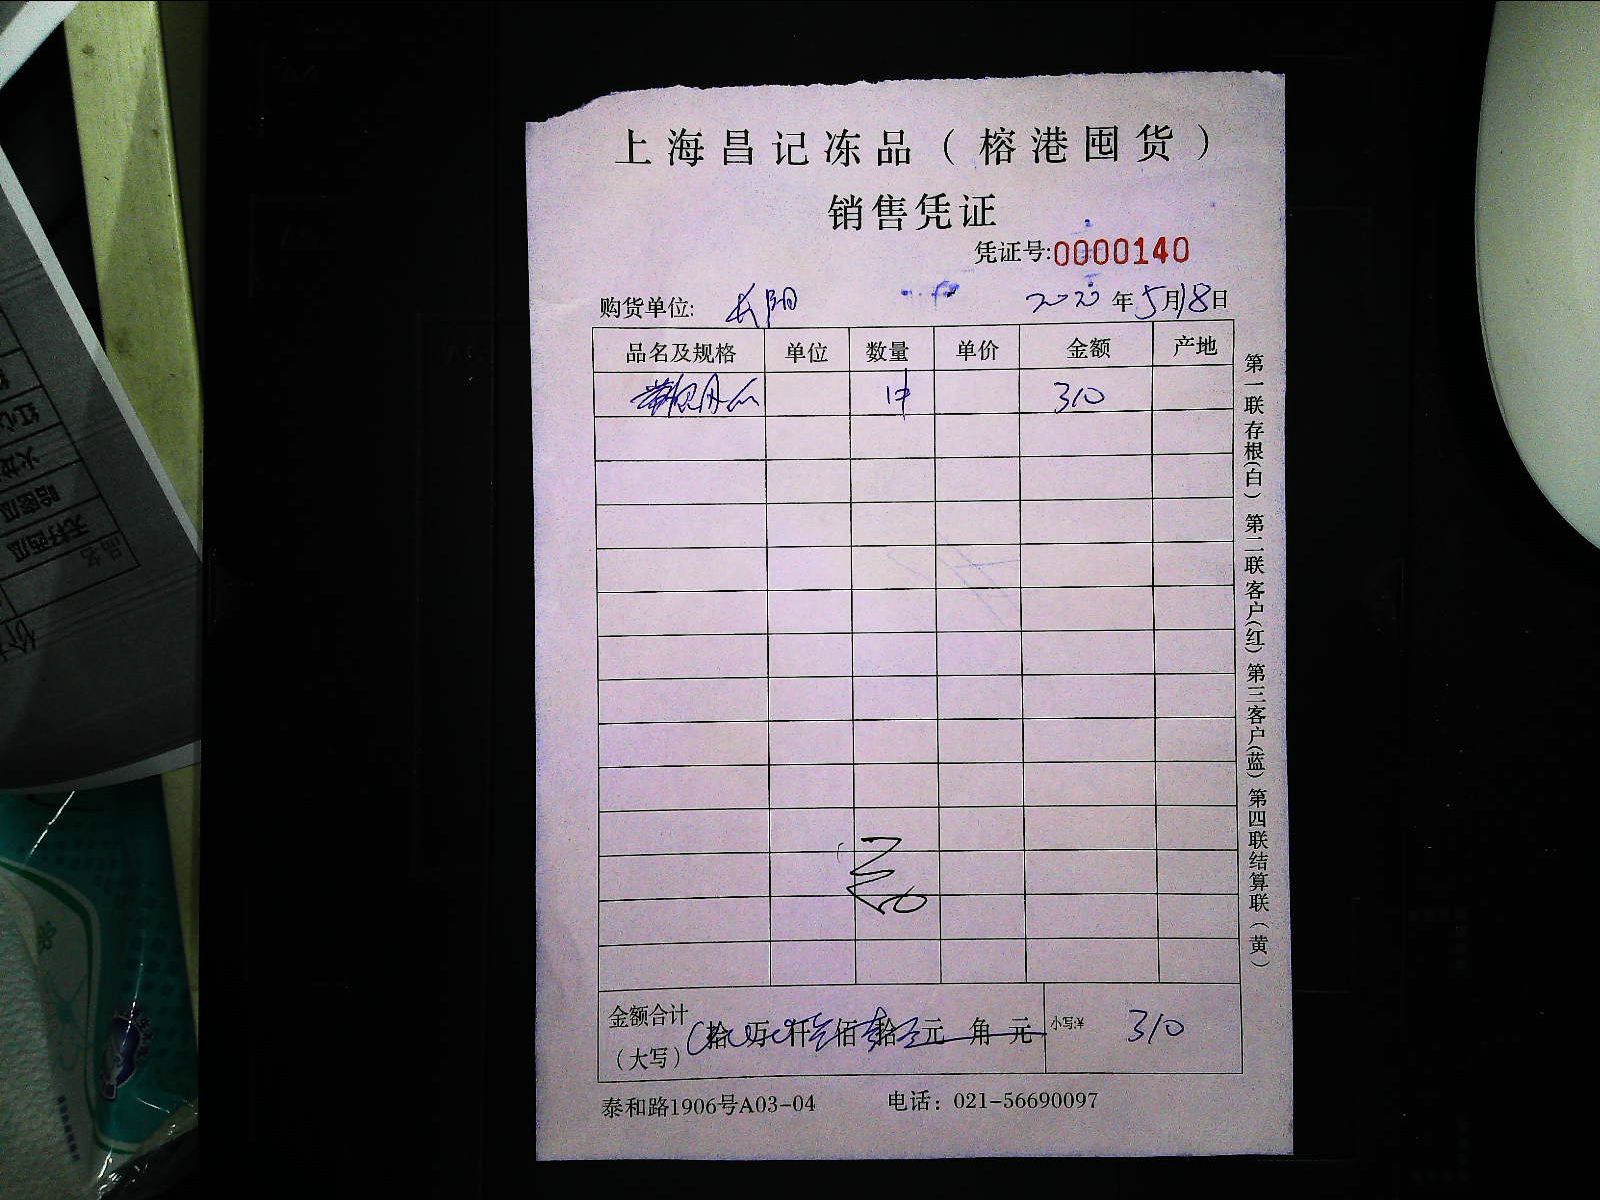 上海昌记冻品（榕港囤货）
销售凭证
凭证号:0000140
购货单位: 长阳 2020年5月18日
品名及规格 单位 数量 单价 金额 产地
1中 310
金额合计
（大写） 拾 万 仟 叁佰 壹拾 元 角 元 小写:¥ 310
泰和路1906号A03-04 电话：021-56690097
第一联存根(白) 第二联客户(红) 第三客户(蓝) 第四联结算联（黄）
品名
无籽西瓜
哈密瓜